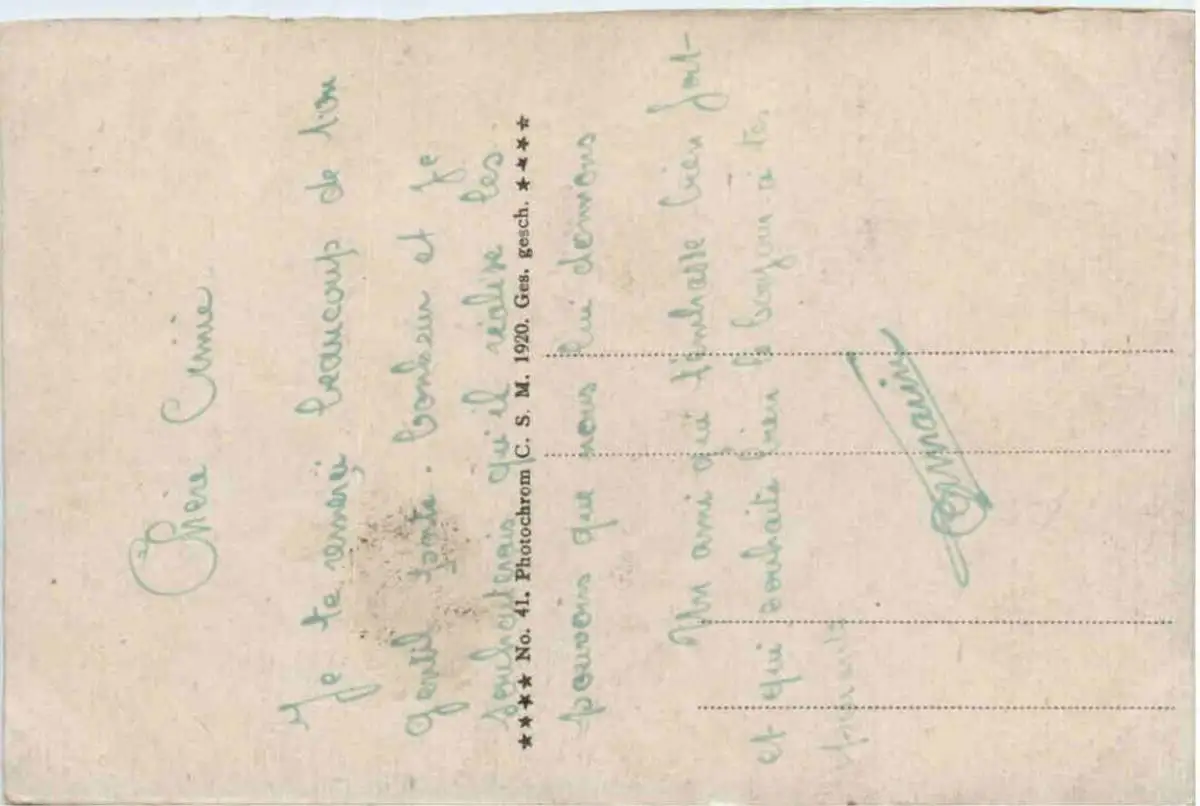 Chère Amie
Je te remerci beaucoup de ton
gentil bonheur et Je
souhaiterais qu'il réalise les
★★★★ No. 41. Photochrom C. S. M. 1920. Ges. gesch. ★★★★
pouvoirs que nous lui donnons
Un ami qui t'embrasse bien fort-
et qui souhaite bien le bonjour à tes
Germain